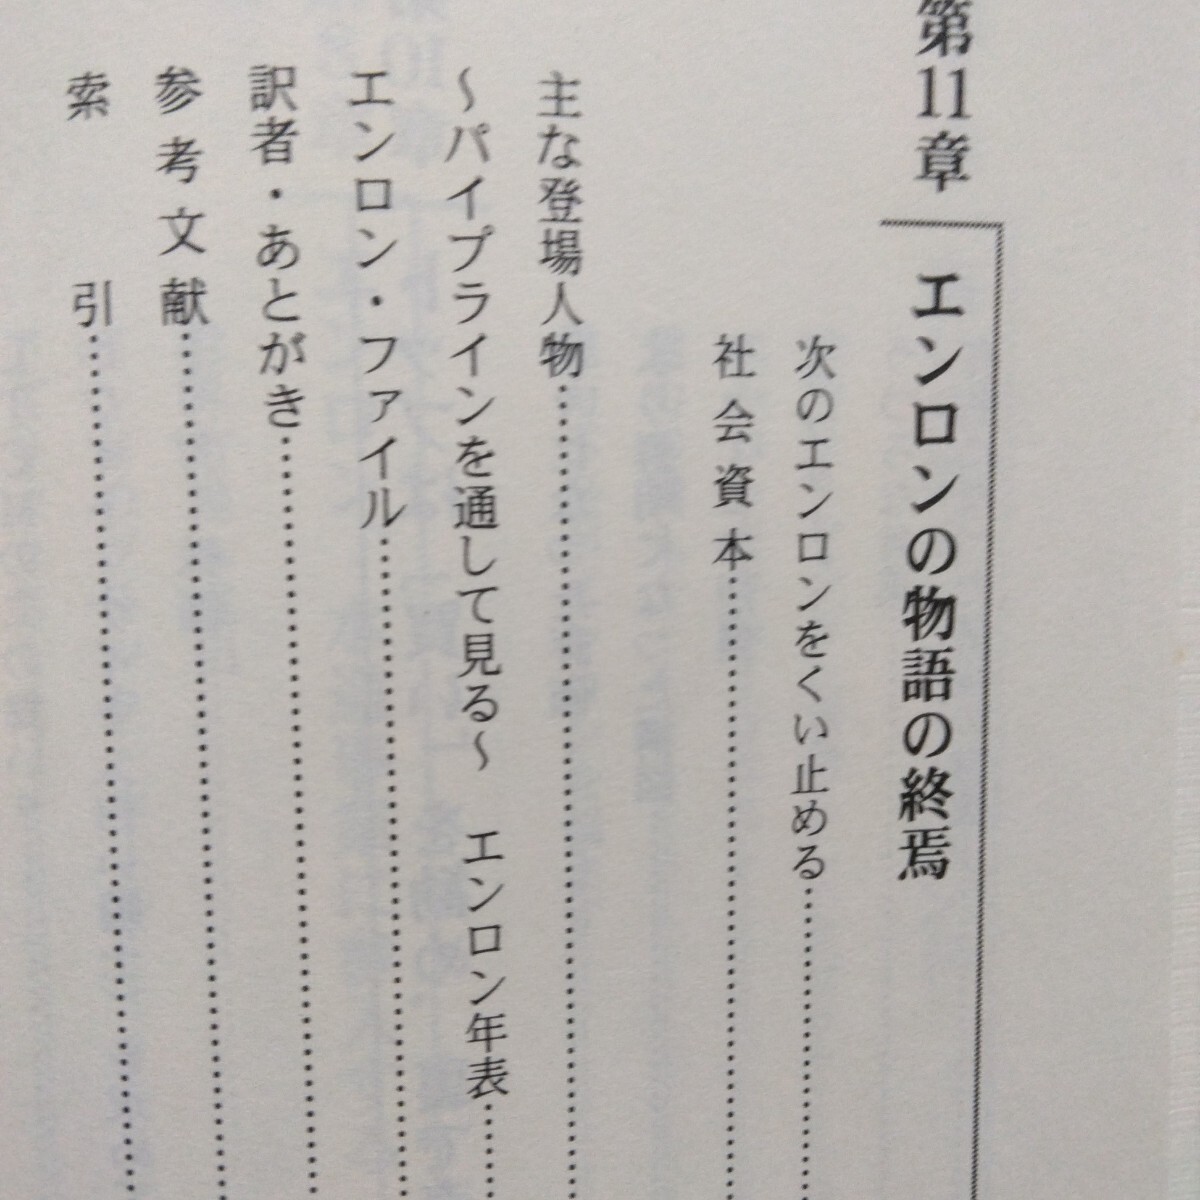 第11章 エンロンの物語の終焉
次のエンロンをくい止める
社会資本
主な登場人物
～パイプラインを通して見る～ エンロン年表
エンロン・ファイル
訳者・あとがき
参考文献
索 引